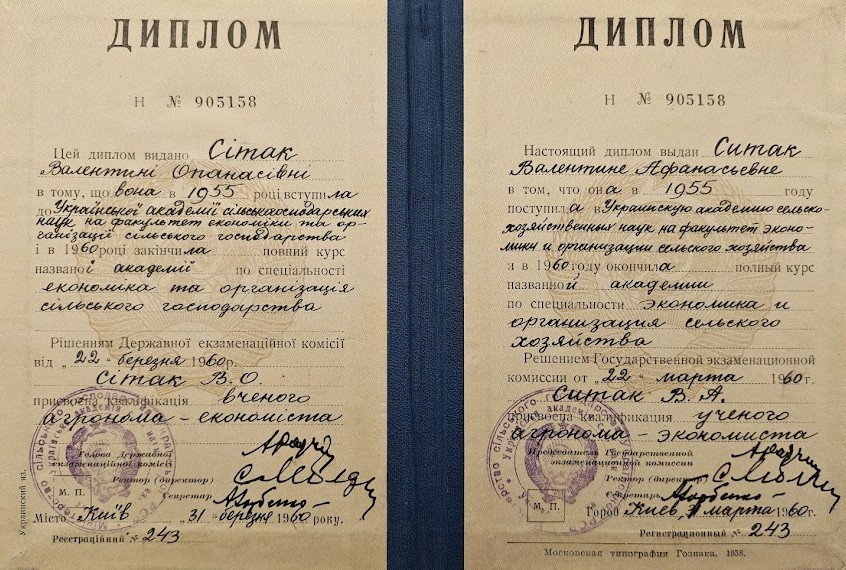 ДИПЛОМ
Н № 905158
Цей диплом видано Сітак
Валентині Опанасівні
в тому, що вона в 1955 році вступила
до Української академії сільськогосподарських
наук на факультет економіки та ор-
ганізації сільського господарства
і в 1960 році закінчила повний курс
названої академії по спеціальності
економіка та організація
сільського господарства
Рішенням Державної екзаменаційної комісії
від „22" березня 1960 р.
Сітак В. О.
присвоєна кваліфікація вченого
агронома – економіста
Голова Державної
екзаменаційної комісії
Ректор (директор)
Секретар
М. П.
Місто Київ „31" березня 1960 року.
Реєстраційний № 243
Украинский яз.
ДИПЛОМ
Н № 905158
Настоящий диплом выдан Ситак
Валентине Афанасьевне
в том, что она в 1955 году
поступила в Украинскую академию сельско-
хозяйственных наук на факультет эконо-
мики и организации сельского хозяйства
и в 1960 году окончила полный курс
названной академии
по специальности экономика и
организация сельского
хозяйства
Решением Государственной экзаменационной
комиссии от „22" марта 1960 г.
Ситак В. А.
присвоена квалификация ученого
агронома – экономиста
Председатель Государственной
экзаменационной комиссии
Ректор (директор)
Секретарь
М. П.
Город Киев, 31 марта 1960 г.
Регистрационный № 243
Московская типография Гознака. 1958.